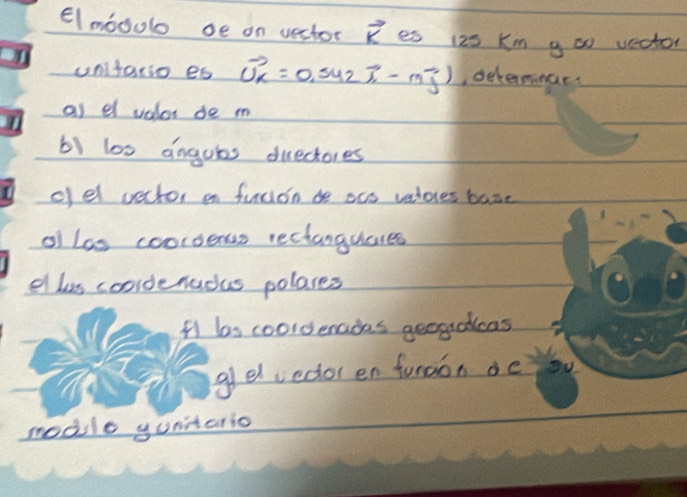 El módulo de un vector K es 125 Km y su vector
unitario es (Uk = 0,542 i - m j), determinar:
a) el valor de m
b) los ángulos directores
c) el vector en función de sus vectores base
d) Las coordenas rectangulares
e) Las coordenadas polares
f) las coordenadas geográficas
g) el vector en función de su
modulo y unitario